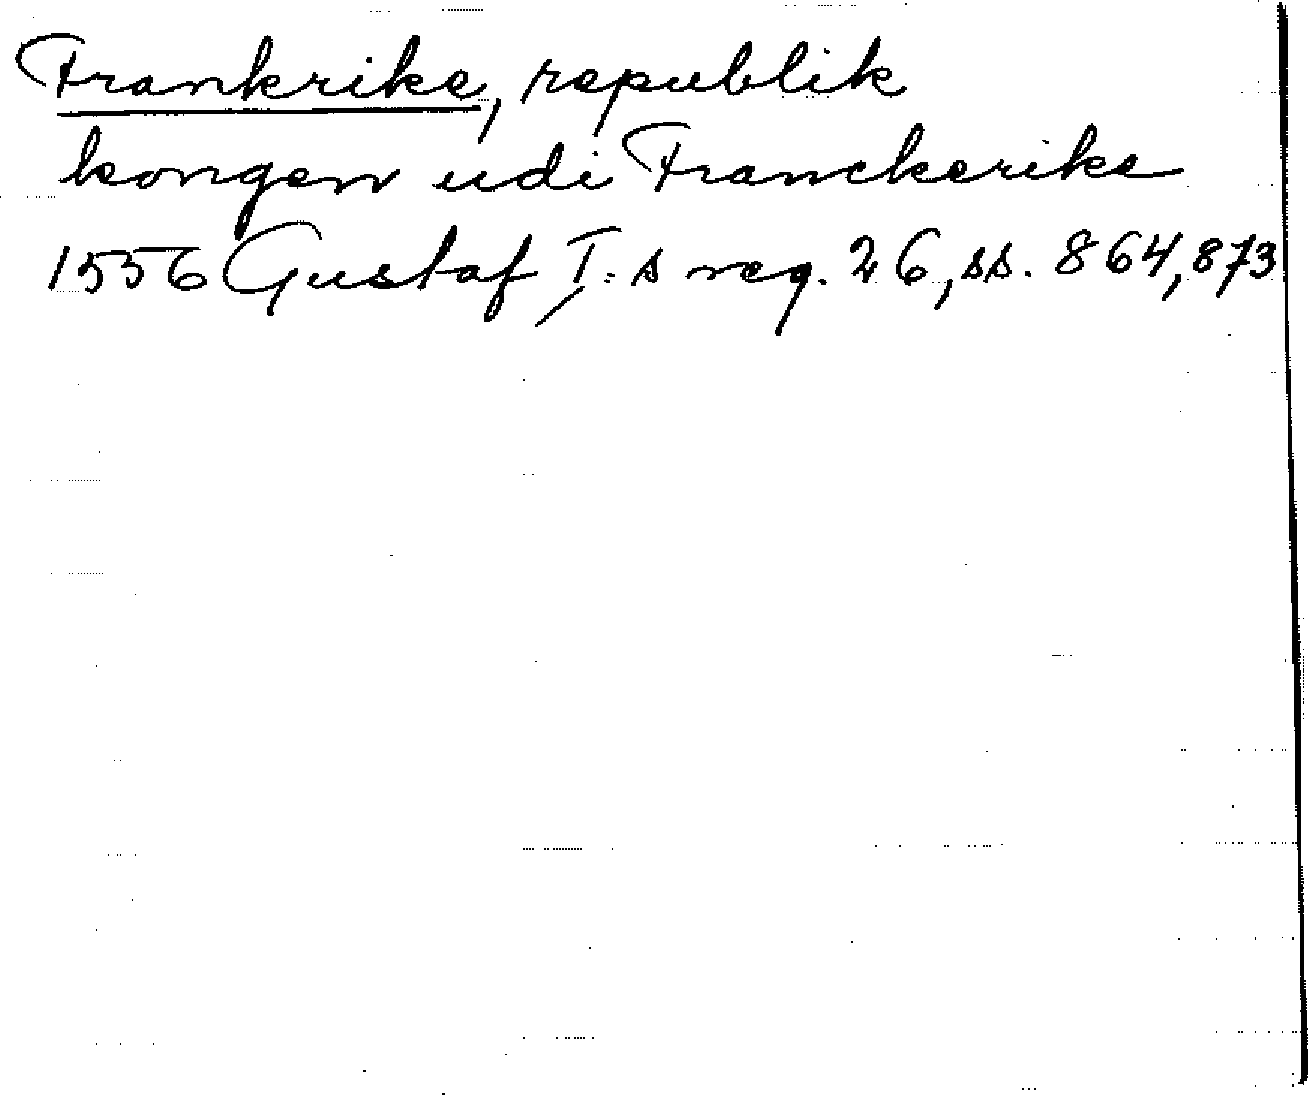 Frankrike, republik
kongen udi Franckerike
1556 Gustaf I:s reg. 26, ss. 864, 873